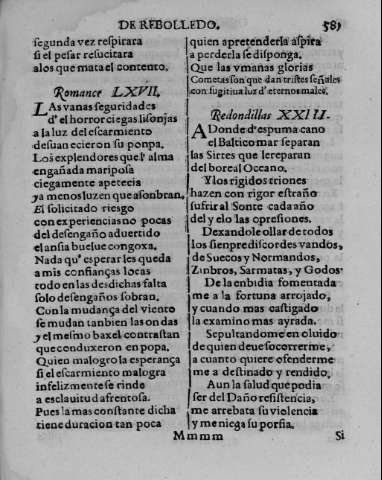 DE REBOLLEDO. 585
segunda vez respirara
si el pesar resucitara
alos que mata el contento.
Romance LXVII.
LAs vanas seguridades
d'el horror ciegas lisonjas
a la luz del escarmiento
desuanecieron su ponpa.
Los explendores que l' alma
engañada mariposa
ciegamente apetecia
ya menos luzen que asonbran.
El solicitado riesgo
con experiencias no pocas
del desengaño aduertido
el ansia buelue congoxa.
Nada qu' esperar les queda
a mis confianças locas
todo en las desdichas falta
solo desengaños sobran.
Con la mudança del viento
se mudan tanbien las ondas
y el mesmo baxel contrastan
que conduxeron en popa.
Quien malogro la esperança
si el escarmiento malogra
infelizmente se rinde
a esclauitud afrentosa.
Pues la mas constante dicha
tiene duracion tan poca
quien apretenderla aspira
a perderla se disponga.
Que las vmanas glorias
Cometas son que dan tristes señales
con fugitiua luz d'eternos males.
Redondillas XXIII.
ADonde d'espuma cano
el Baltico mar separan
las Sirtes que le reparan
del boreal Oceano.
Y los rigidos triones
hazen con rigor estraño
sufrir al Sonte cada año
del yelo las opresiones.
Dexandole ollar de todos
los sienpre discordes vandos,
de Suecos y Normandos,
Zinbros, Sarmatas, y Godos.
De la enbidia fomentada
me a la fortuna arrojado,
y cuando mas castigado
la examino mas ayrada.
Sepultandome en oluido
de quien deue socorrerme,
a cuanto quiere ofenderme
me a destinado y rendido.
Aun la salud que podia
ser del Daño resistencia,
me arrebata su violencia
y me niega su porfia.
Mmmm Si